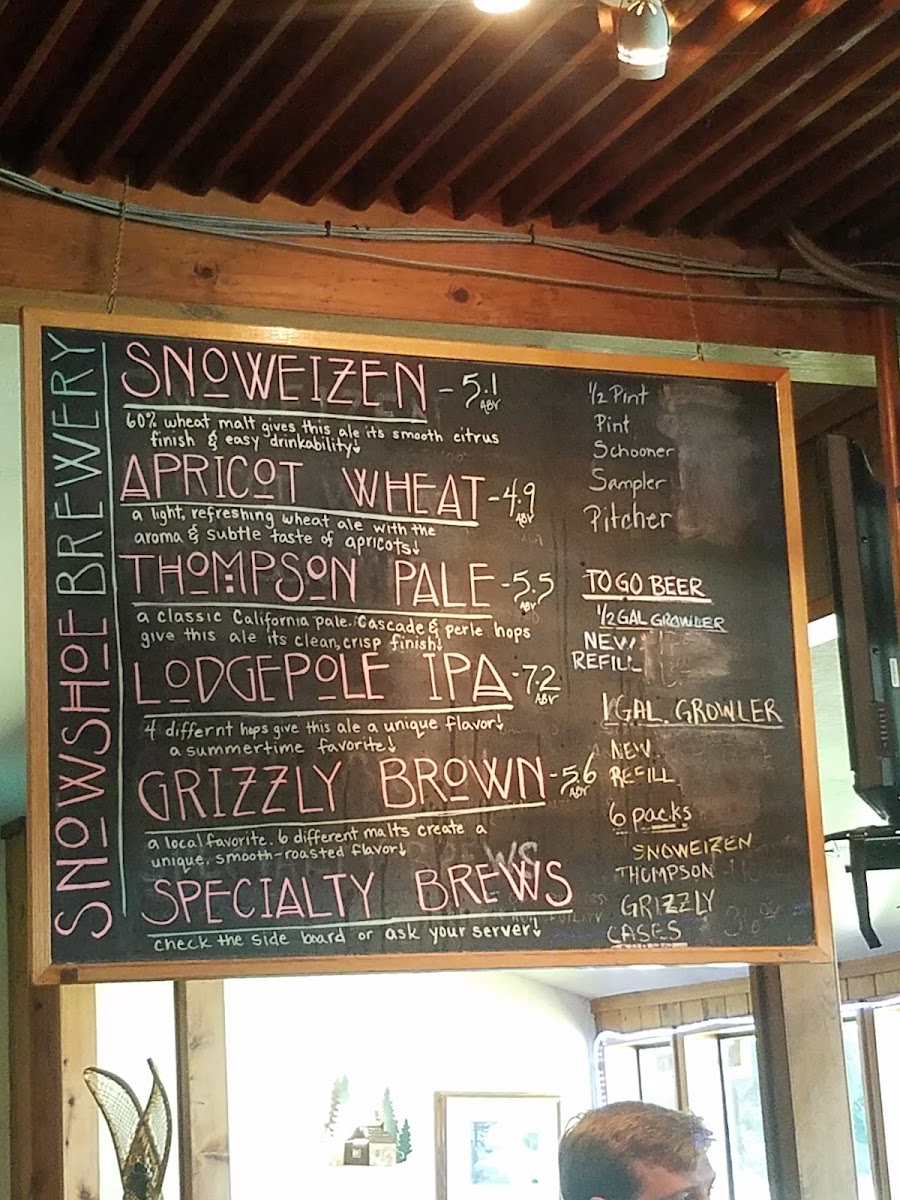 SNOWSHOE BREWERY
SNOWEIZEN - 5.1 ABV
60% wheat malt gives this ale its smooth citrus
finish & easy drinkability!
APRICOT WHEAT - 4.9 ABV
a light, refreshing wheat ale with the
aroma & subtle taste of apricots!
THOMPSON PALE - 5.5 ABV
a classic California pale. Cascade & perle hops
give this ale its clean, crisp finish!
LODGEPOLE IPA - 7.2 ABV
4 differnt hops give this ale a unique flavor!
a summertime favorite!
GRIZZLY BROWN - 5.6 ABV
a local favorite. 6 different malts create a
unique, smooth-roasted flavor!
SPECIALTY BREWS
check the side board or ask your server!
1/2 Pint
Pint
Schooner
Sampler
Pitcher
TO GO BEER
1/2 GAL GROWLER
NEW
REFILL
1 GAL. GROWLER
NEW
REFILL
6 packs
SNOWEIZEN
THOMPSON
GRIZZLY
CASES